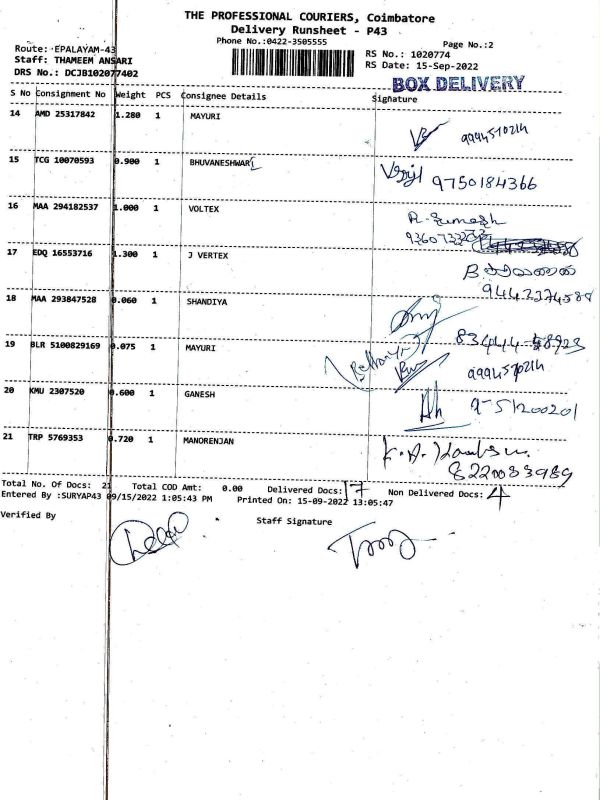 THE PROFESSIONAL COURIERS, Coimbatore
Delivery Runsheet - P43
Phone No.:0422-3505555
Page No.:2
Route: EPALAYAM-43
RS No.: 1020774
Staff: THAMEEM ANSARI
RS Date: 15-Sep-2022
DRS No.: DCJB102077402
BOX DELIVERY
S No Consignment No Weight PCS Consignee Details Signature
14 AMD 25317842 1.280 1 MAYURI
9994570214
15 TCG 10070593 0.900 1 BHUVANESHWARI
9750184366
16 MAA 294182537 1.000 1 VOLTEX
R.
17 EDQ 16553716 1.300 1 J VERTEX
9442374588
18 MAA 293847528 0.060 1 SHANDIYA
19 BLR 5100829169 0.075 1 MAYURI
9994570214
20 KMU 2307520 0.600 1 GANESH
9751200201
21 TRP 5769353 0.720 1 MANORENJAN
8220083989
Total No. Of Docs: 21 Total COD Amt: 0.00 Delivered Docs: 17 Non Delivered Docs: 4
Entered By :SURYAP43 09/15/2022 1:05:43 PM Printed On: 15-09-2022 13:05:47
Verified By
Staff Signature